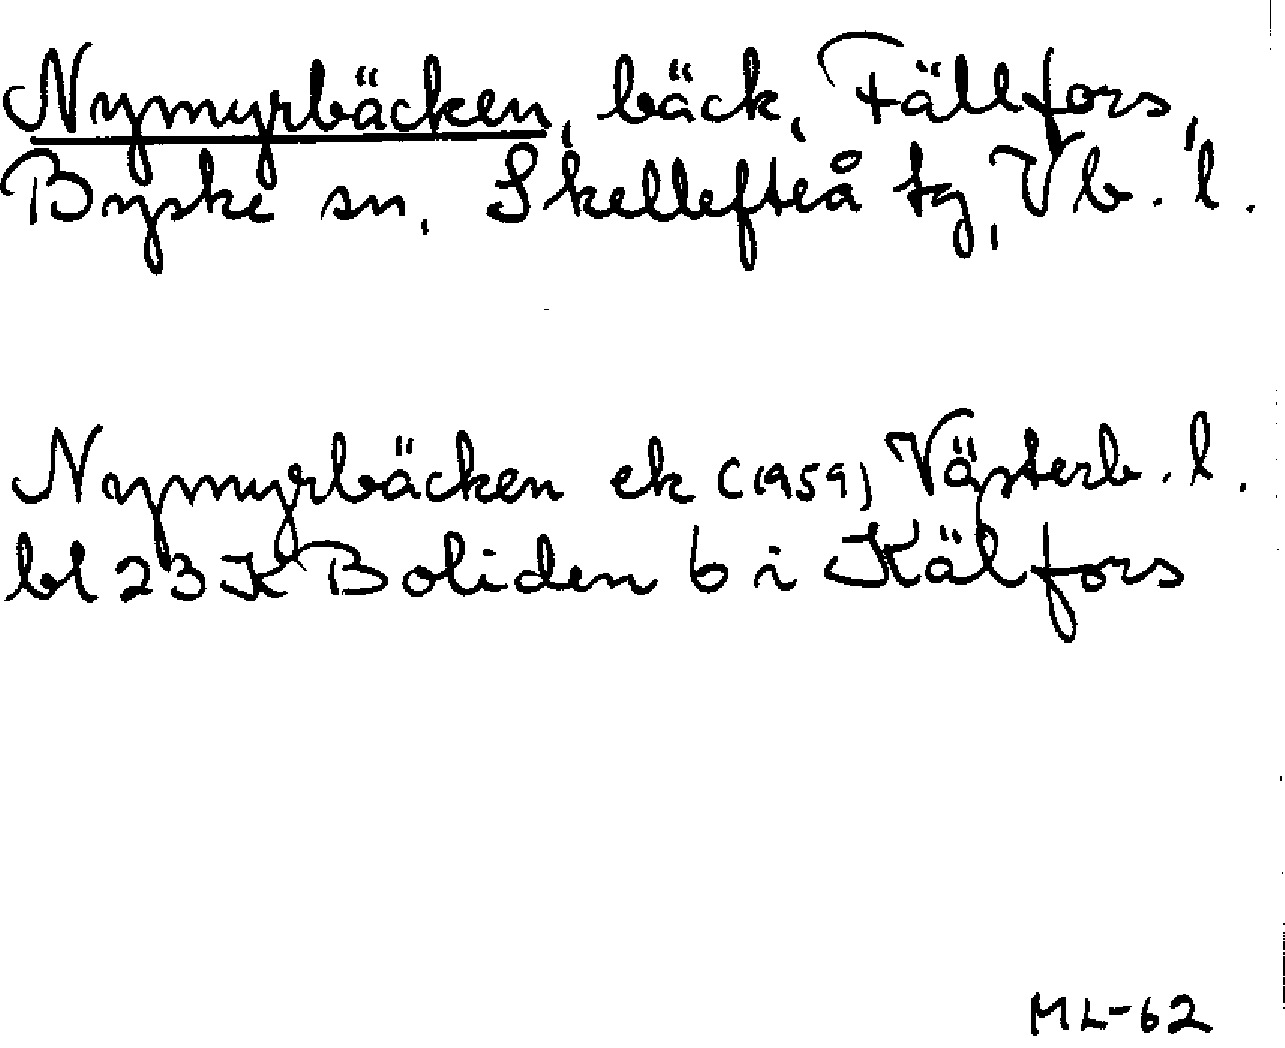 Nymyrbäcken, bäck, Fällfors,
Byske sn, Skellefteå tg, Vb. l.
Nymyrbäcken ek (1959) Västerb. l.
bl 23 K Boliden 6 i Källfors
ML-62